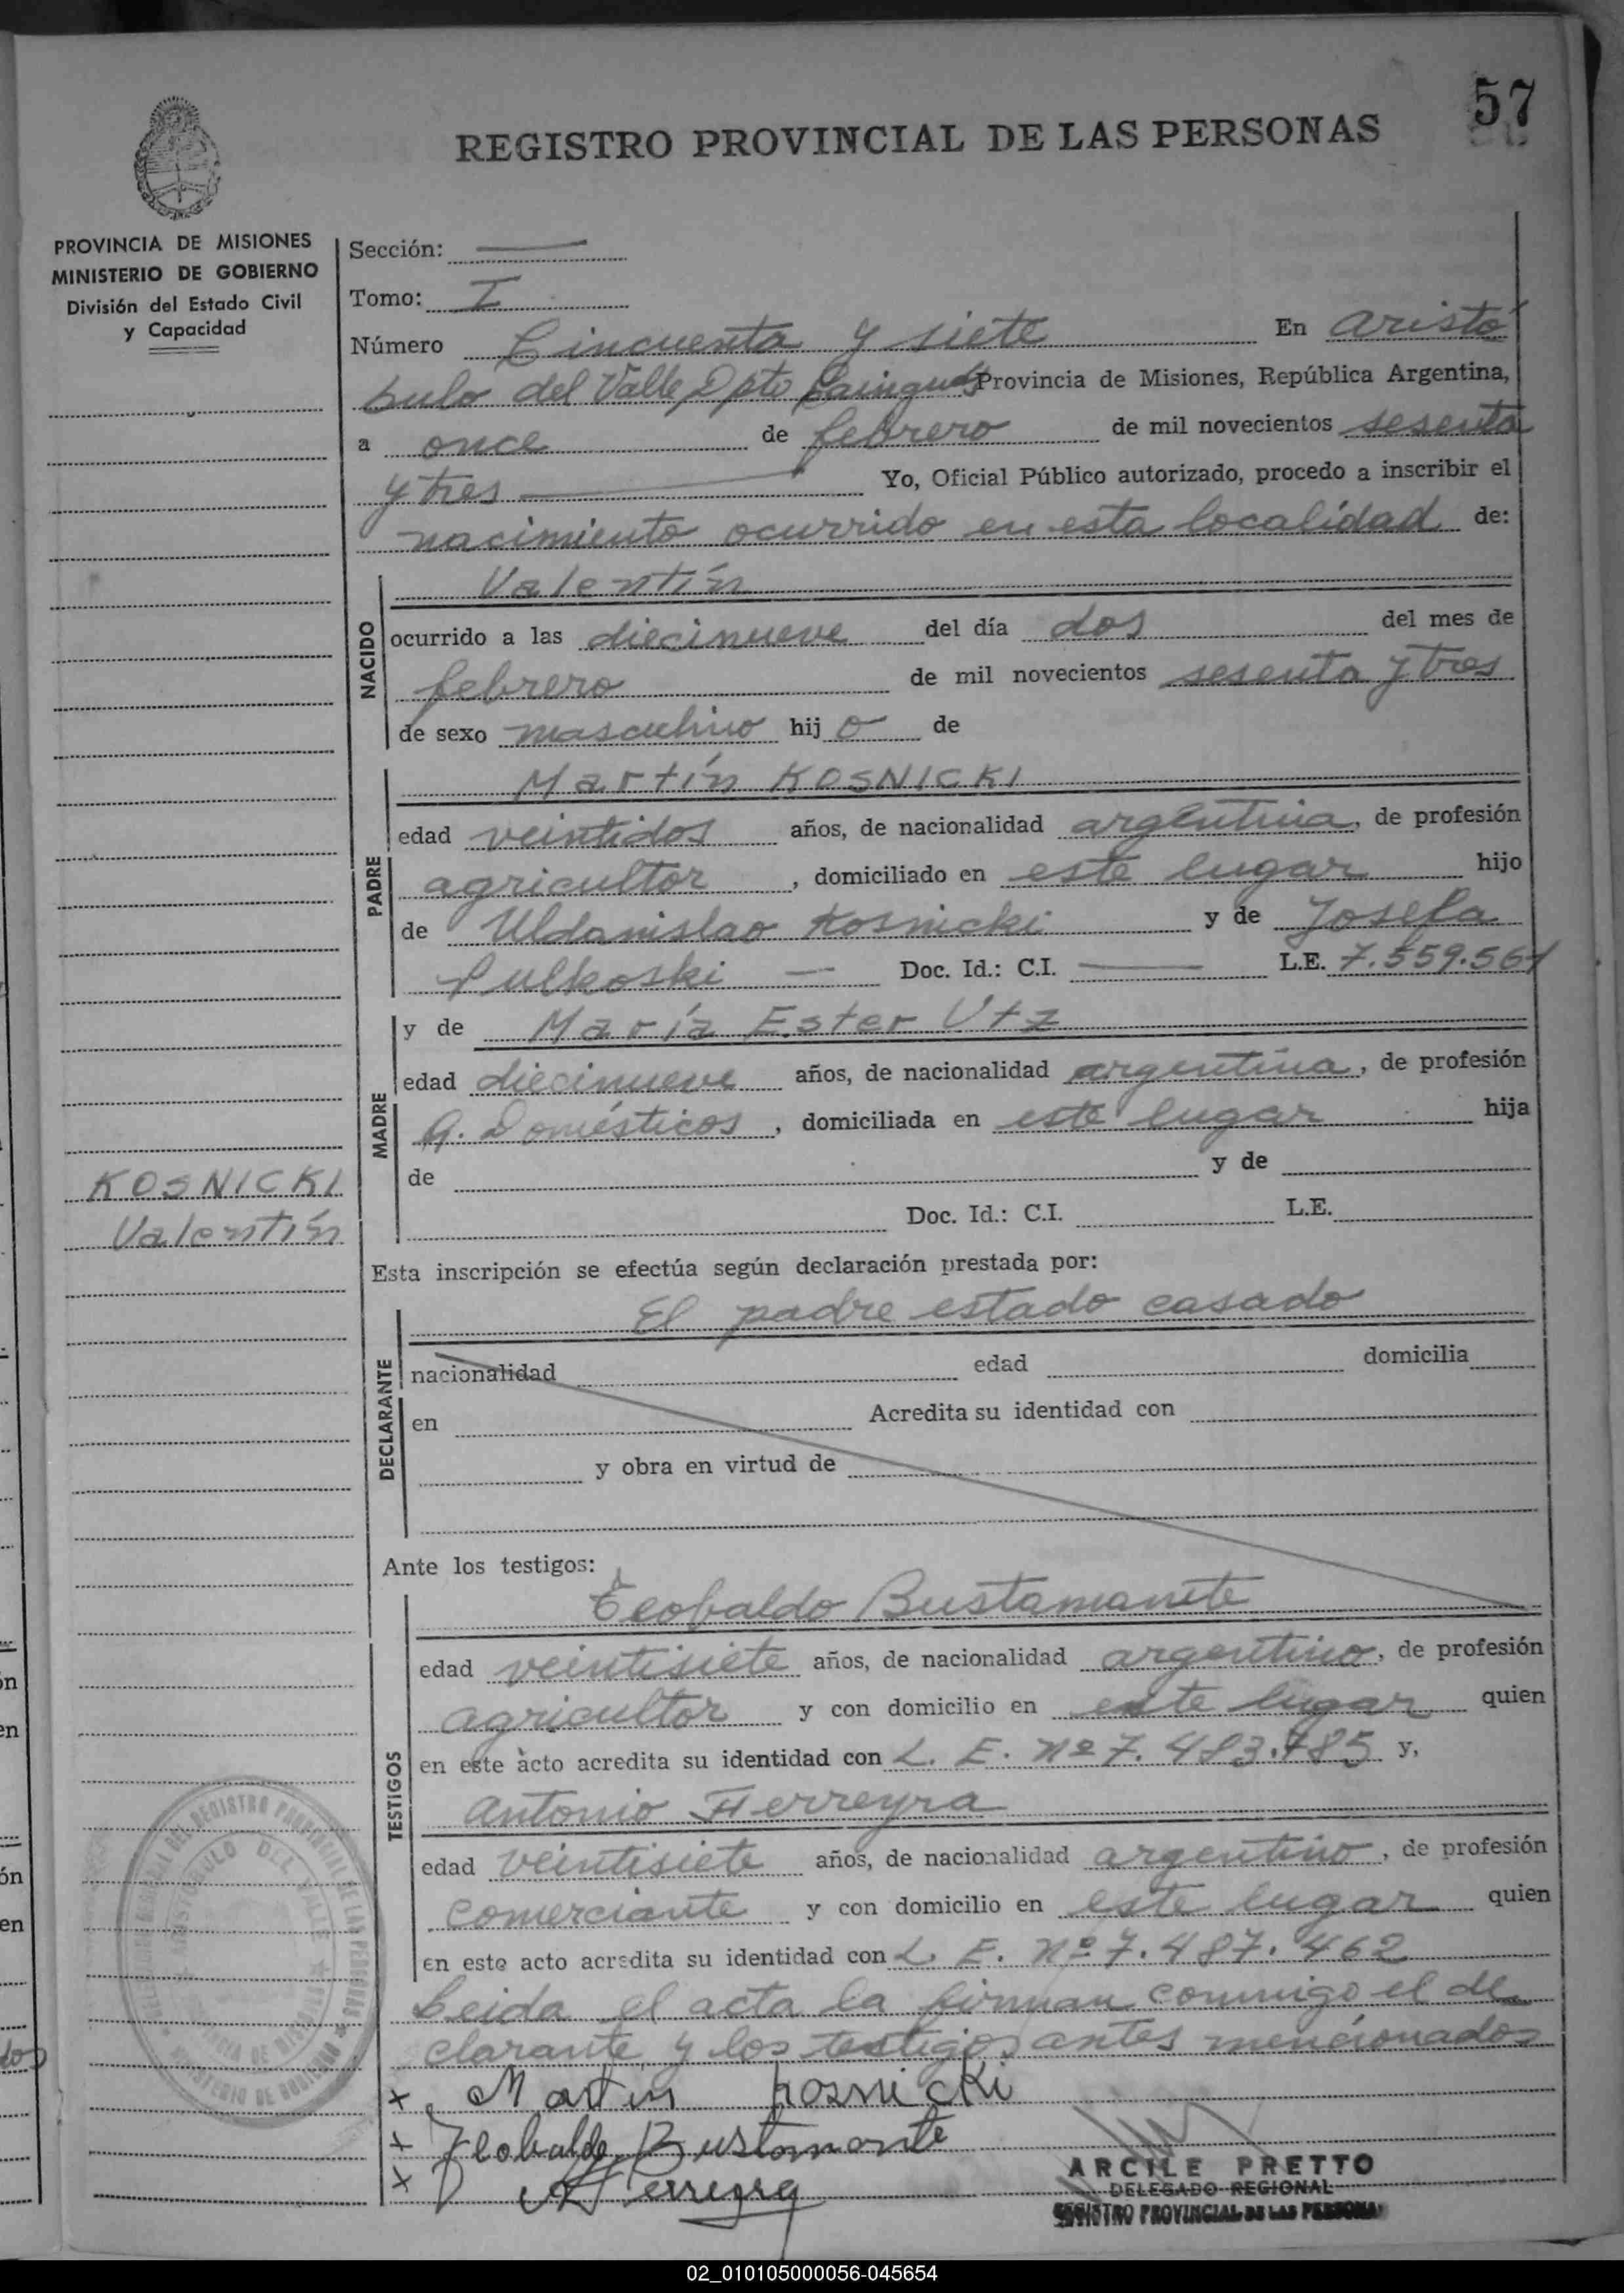 57
REGISTRO PROVINCIAL DE LAS PERSONAS
PROVINCIA DE MISIONES
MINISTERIO DE GOBIERNO
División del Estado Civil
y Capacidad
KOSNICKI
Valentín
Sección:
Tomo: I
Número Cincuenta y siete En Aristó
bulo del Valle, Dpto Cainguás Provincia de Misiones, República Argentina,
a once de febrero de mil novecientos sesenta
y tres Yo, Oficial Público autorizado, procedo a inscribir el
nacimiento ocurrido en esta localidad de:
NACIDO
Valentín
ocurrido a las diecinueve del día dos del mes de
febrero de mil novecientos sesenta y tres
de sexo masculino hij o de
PADRE
Martín KOSNICKI
edad veintidos años, de nacionalidad argentina, de profesión
agricultor, domiciliado en este lugar hijo
de Uldanislao Kosnicki y de Josefa
Sulkoski — Doc. Id.: C.I. — L.E. 7.559.561
MADRE
y de María Ester Utz
edad diecinueve años, de nacionalidad argentina, de profesión
Q. Domésticos, domiciliada en este lugar hija
de y de
Doc. Id.: C.I. L.E.
Esta inscripción se efectúa según declaración prestada por:
DECLARANTE
El padre estado casado
nacionalidad edad domicilia
en Acredita su identidad con
y obra en virtud de
Ante los testigos:
TESTIGOS
Teobaldo Bustamante
edad veintisiete años, de nacionalidad argentino, de profesión
agricultor y con domicilio en este lugar quien
en este acto acredita su identidad con L. E. Nº 7.483.785 y,
Antonio Ferreyra
edad veintisiete años, de nacionalidad argentino, de profesión
comerciante y con domicilio en este lugar quien
en este acto acredita su identidad con L. E. Nº 7.487.462
Leida el acta la firman conmigo el de
clarante y los testigos antes mencionados
x Martin Kosnicki
x Teobaldo Bustamante
x A Ferreyra
ARCILE PRETTO
DELEGADO REGIONAL
REGISTRO PROVINCIAL DE LAS PERSONAS
ARISTOBULO DEL VALLE
02_010105000056-045654